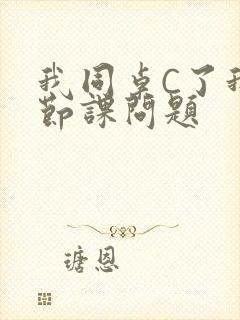 我同桌C了我
節課問題
瑭恩